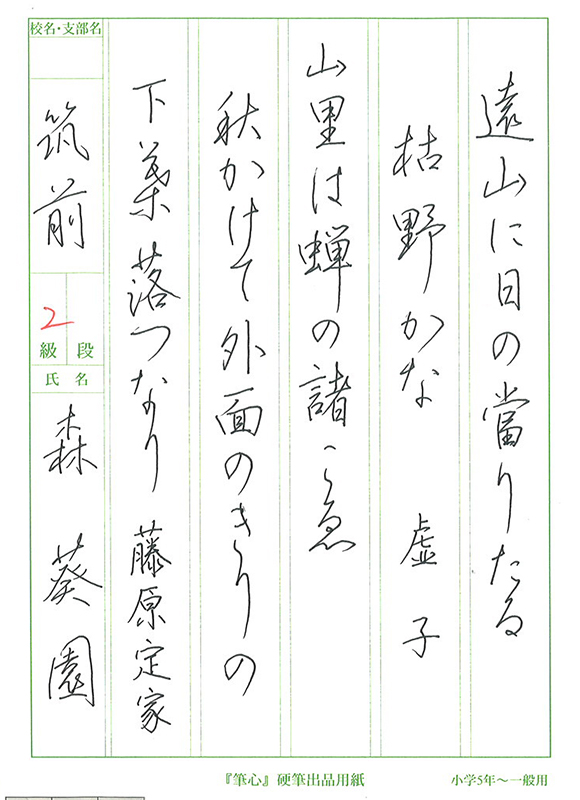 遠山に日の當りたる
枯野かな　虚子
山里は蝉の諸こゑ
秋かけて外面のきりの
下葉落つなり　藤原定家
校名・支部名
筑前
2
級　段
氏　名
森　葵園
『筆心』硬筆出品用紙
小学5年～一般用